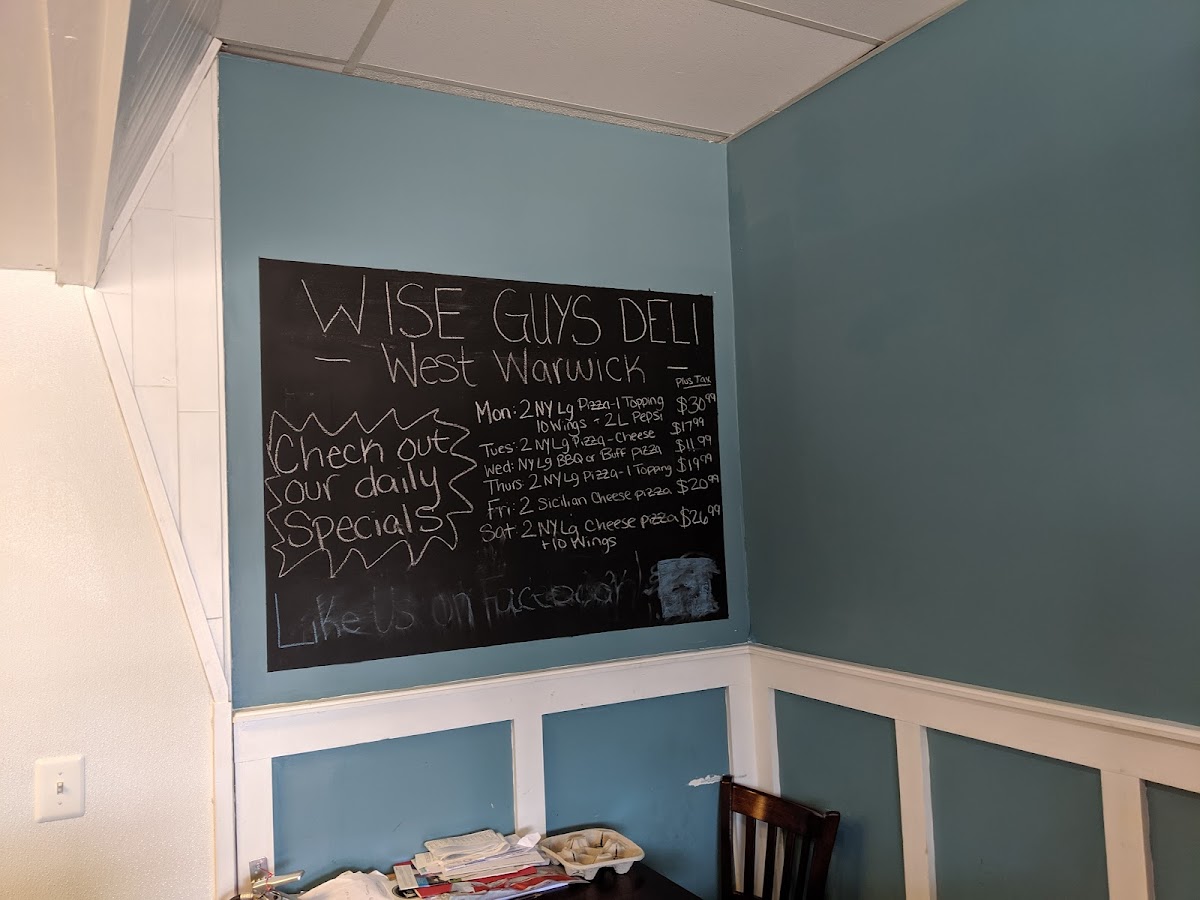 WISE GUYS DELI
- West Warwick -
plus Tax
Check out
our daily
Specials
Mon: 2 NY Lg Pizza-1 Topping $30.99
10 Wings + 2L Pepsi
Tues: 2 NY Lg Pizza-Cheese $17.99
Wed: NY Lg BBQ or Buff pizza $11.99
Thurs: 2 NY Lg Pizza-1 Topping $19.99
Fri: 2 Sicilian Cheese pizza $20.99
Sat: 2 NY Lg Cheese pizza $26.99
+10 Wings
Like Us on Facebook